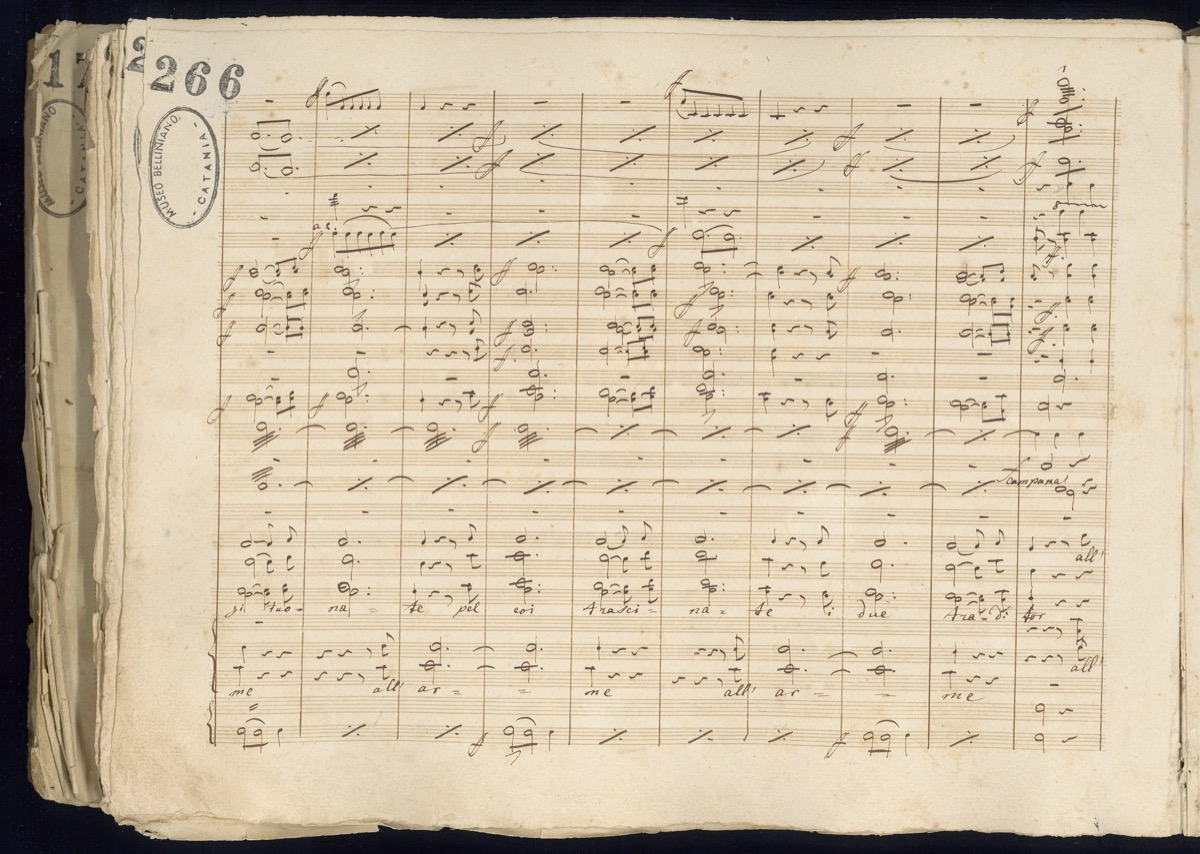 17
2
266
MUSEO BELLINIANO
- CATANIA -
MUSEO BELLINIANO
- CATANIA -
Campana
all'
na = te pel coi trasci = na = te i due tra-di tor
all'
me all' ar = = me all' ar = = me